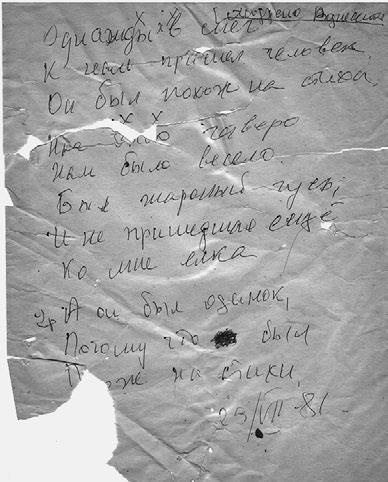 Однажды в снег
К нам пришел человек,
Он был похож на стихи.
Нас было четверо
Нам было весело.
Был жареный гусь,
И не пришедшая ещё
Ко мне елка
2р А он был одинок,
Потому что был
Похож на стихи,
23/VII-81